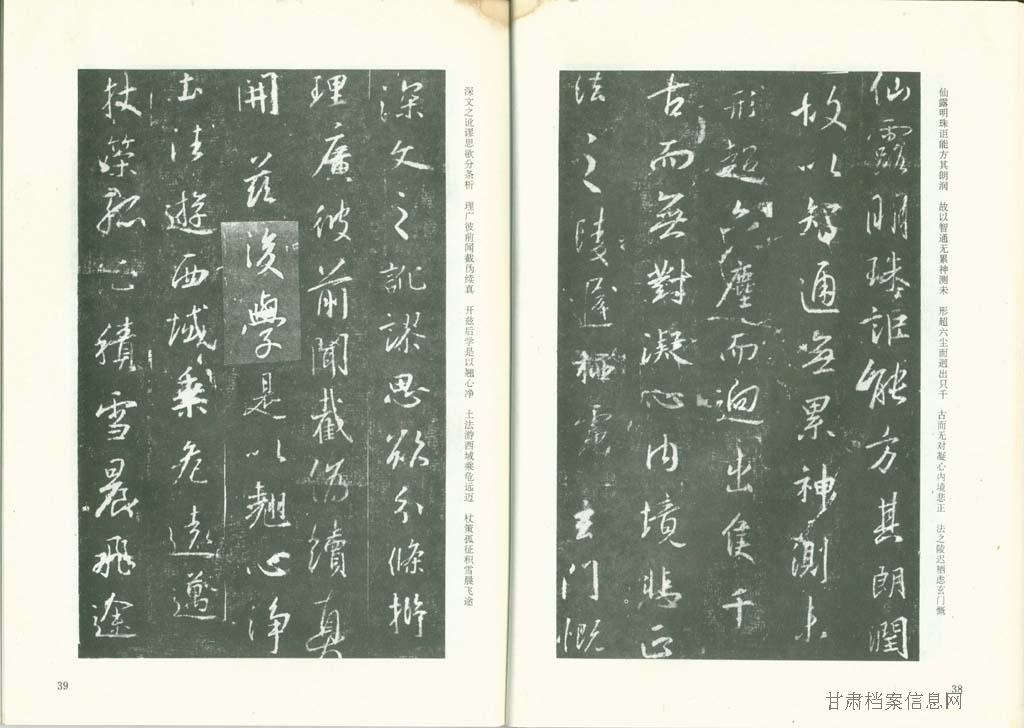 仙露明珠讵能方其朗润 故以智通无累神测未 形超六尘而迥出只千 古而无对凝心内境悲正 法之陵迟栖虑玄门慨
仙露明珠詎能方其朗潤
故以智通無累神測未
形超六塵而迥出隻千
古而無對凝心内境悲正
法之陵遲栖慮玄門慨
38
深文之讹谬思欲分条析 理广彼前闻截伪续真 开兹后学是以翘心净 土法游西域乘危远迈 杖策孤征积雪晨飞途
深文之訛謬思欲分條析
理廣彼前聞截偽續真
開茲後學是以翹心淨
土法遊西域乘危遠邁
杖策孤征積雪晨飛途
39
甘肃档案信息网